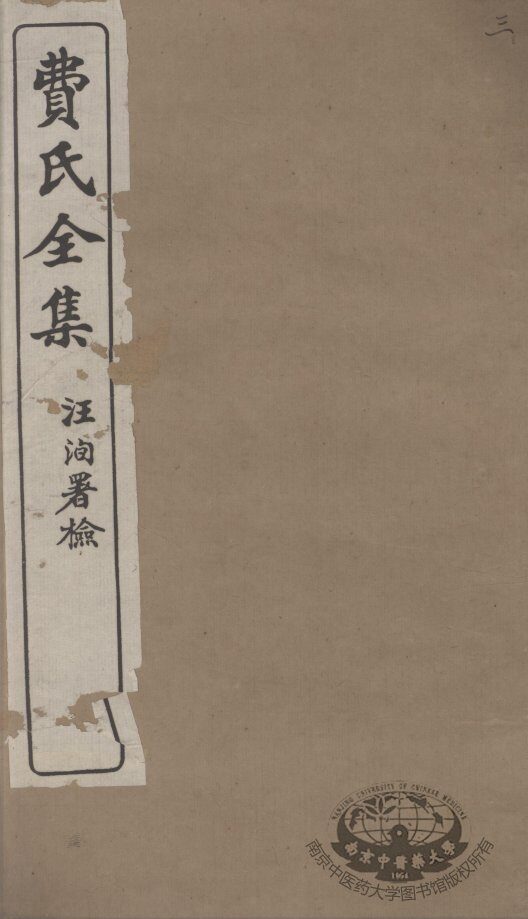 三
費氏全集
汪洵署檢
NANJING UNIVERSITY OF CHINESE MEDICINE
南京中醫藥大學
1954
南京中医药大学图书馆版权所有